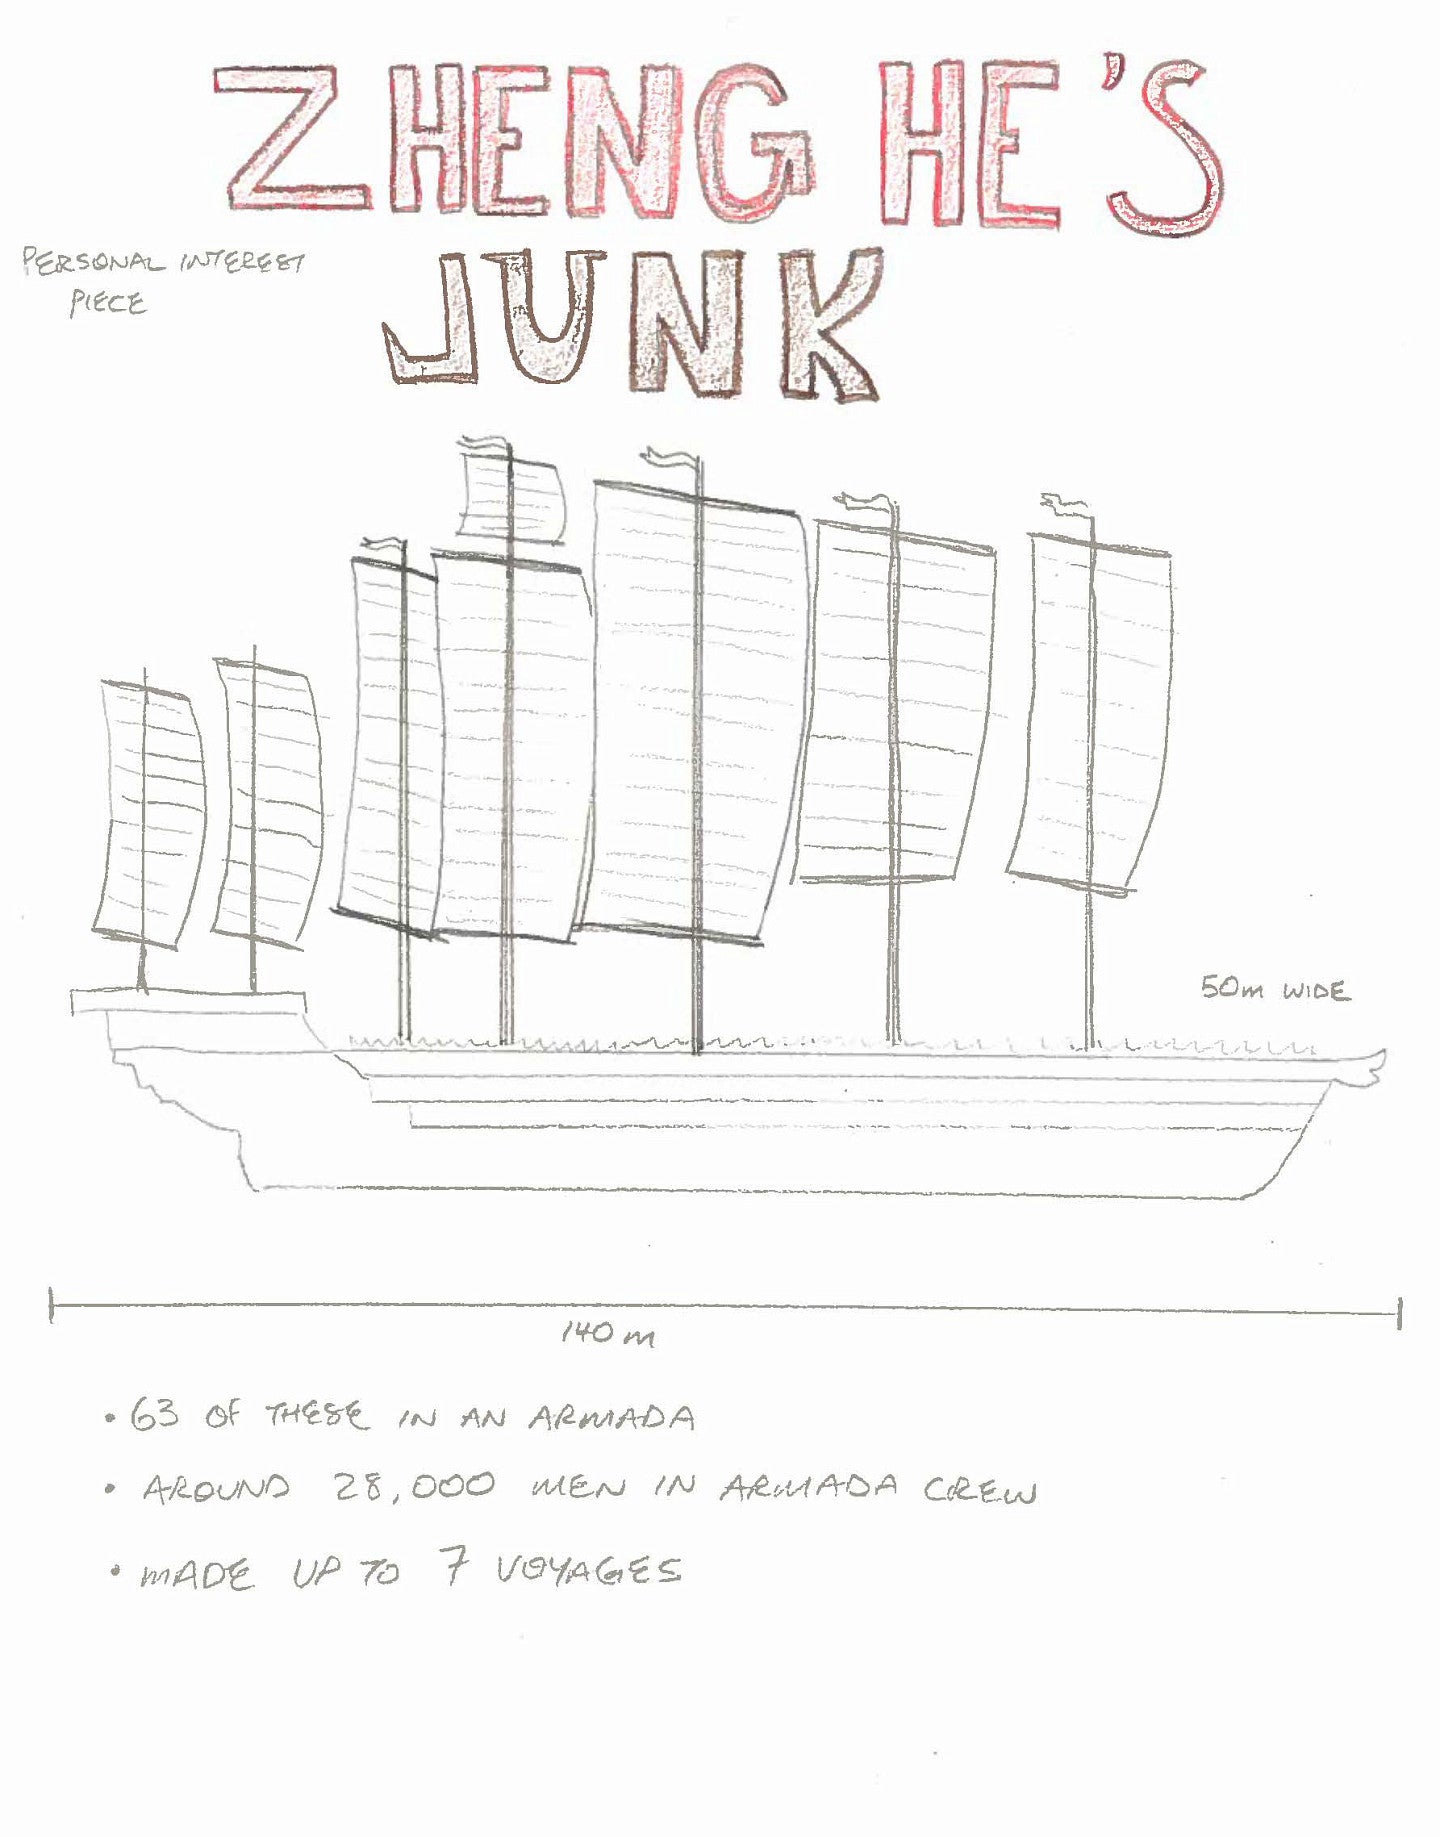 ZHENG HE'S
JUNK
PERSONAL INTEREST
PIECE
50m WIDE
140 m
• 63 OF THESE IN AN ARMADA
• AROUND 28,000 MEN IN ARMADA CREW
• MADE UP TO 7 VOYAGES